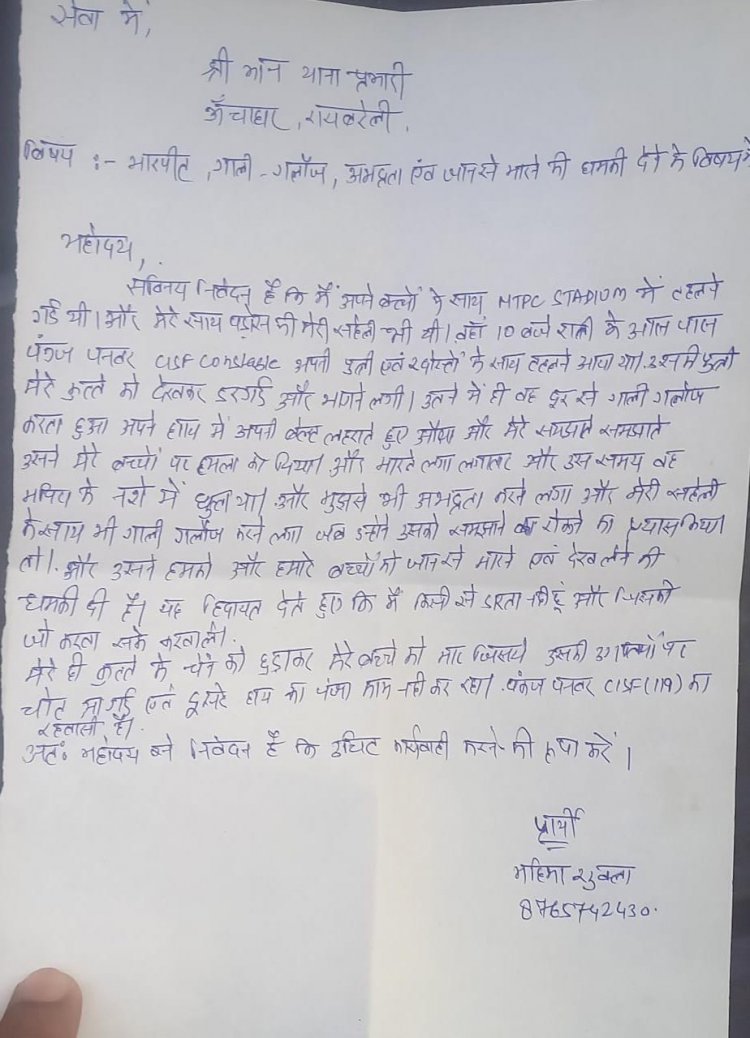 सेवा में,
श्री मान थाना प्रभारी
ऊँचाहार, रायबरेली.
विषय :- मारपीट, गाली-गलौज, अभद्रता एवं जान से मारने की धमकी देने के विषय में
महोदय,
सविनय निवेदन है कि मैं अपने बच्चों के साथ NTPC STADIUM में टहलने
गई थी। और मेरे साथ पड़ोस की मेरी सहेली भी थी। वहाँ 10 बजे रात्री के आस पास
पंकज पनवर CISF Constable अपनी पुत्री एवं दोस्तों के साथ टहलने आया था। उसमें पुत्री
मेरे कुत्ते को देखकर डर गई और भागने लगी। इतने में ही वह दूर से गाली गलौज
करता हुआ अपने हाथ में अपनी बेल्ट लहराते हुए आया और मेरे समझाते समझाते
उसने मेरे बच्चों पर हमला कर दिया। और मारने लगा लगातार और उस समय वह
मदिरा के नशे में धुत्त था। और मुझसे भी अभद्रता करने लगा और मेरी सहेली
के साथ भी गाली गलौज करने लगा जब उन्होंने उसको समझाने का रोकने का प्रयास किया
तो। और उसने हमको और हमारे बच्चों को जान से मारने एवं देख लेने की
धमकी दी है। यह हिदायत देते हुए कि मैं किसी से डरता नहीं हूँ और जिसको
जो करना सके करवा ले।
मेरे ही कुत्ते के चेन को छुड़ाकर मेरे बच्चे को मारा जिससे उसकी उंगलियों पर
चोट आ गई एवं दूसरे हाथ का पंजा काम नहीं कर रहा। पंकज पनवर CISF (119) का
रहवासी है।
अतः महोदय से निवेदन है कि उचित कार्यवाही करने की कृपा करें।
प्रार्थी
महिमा शुक्ला
8765742430.